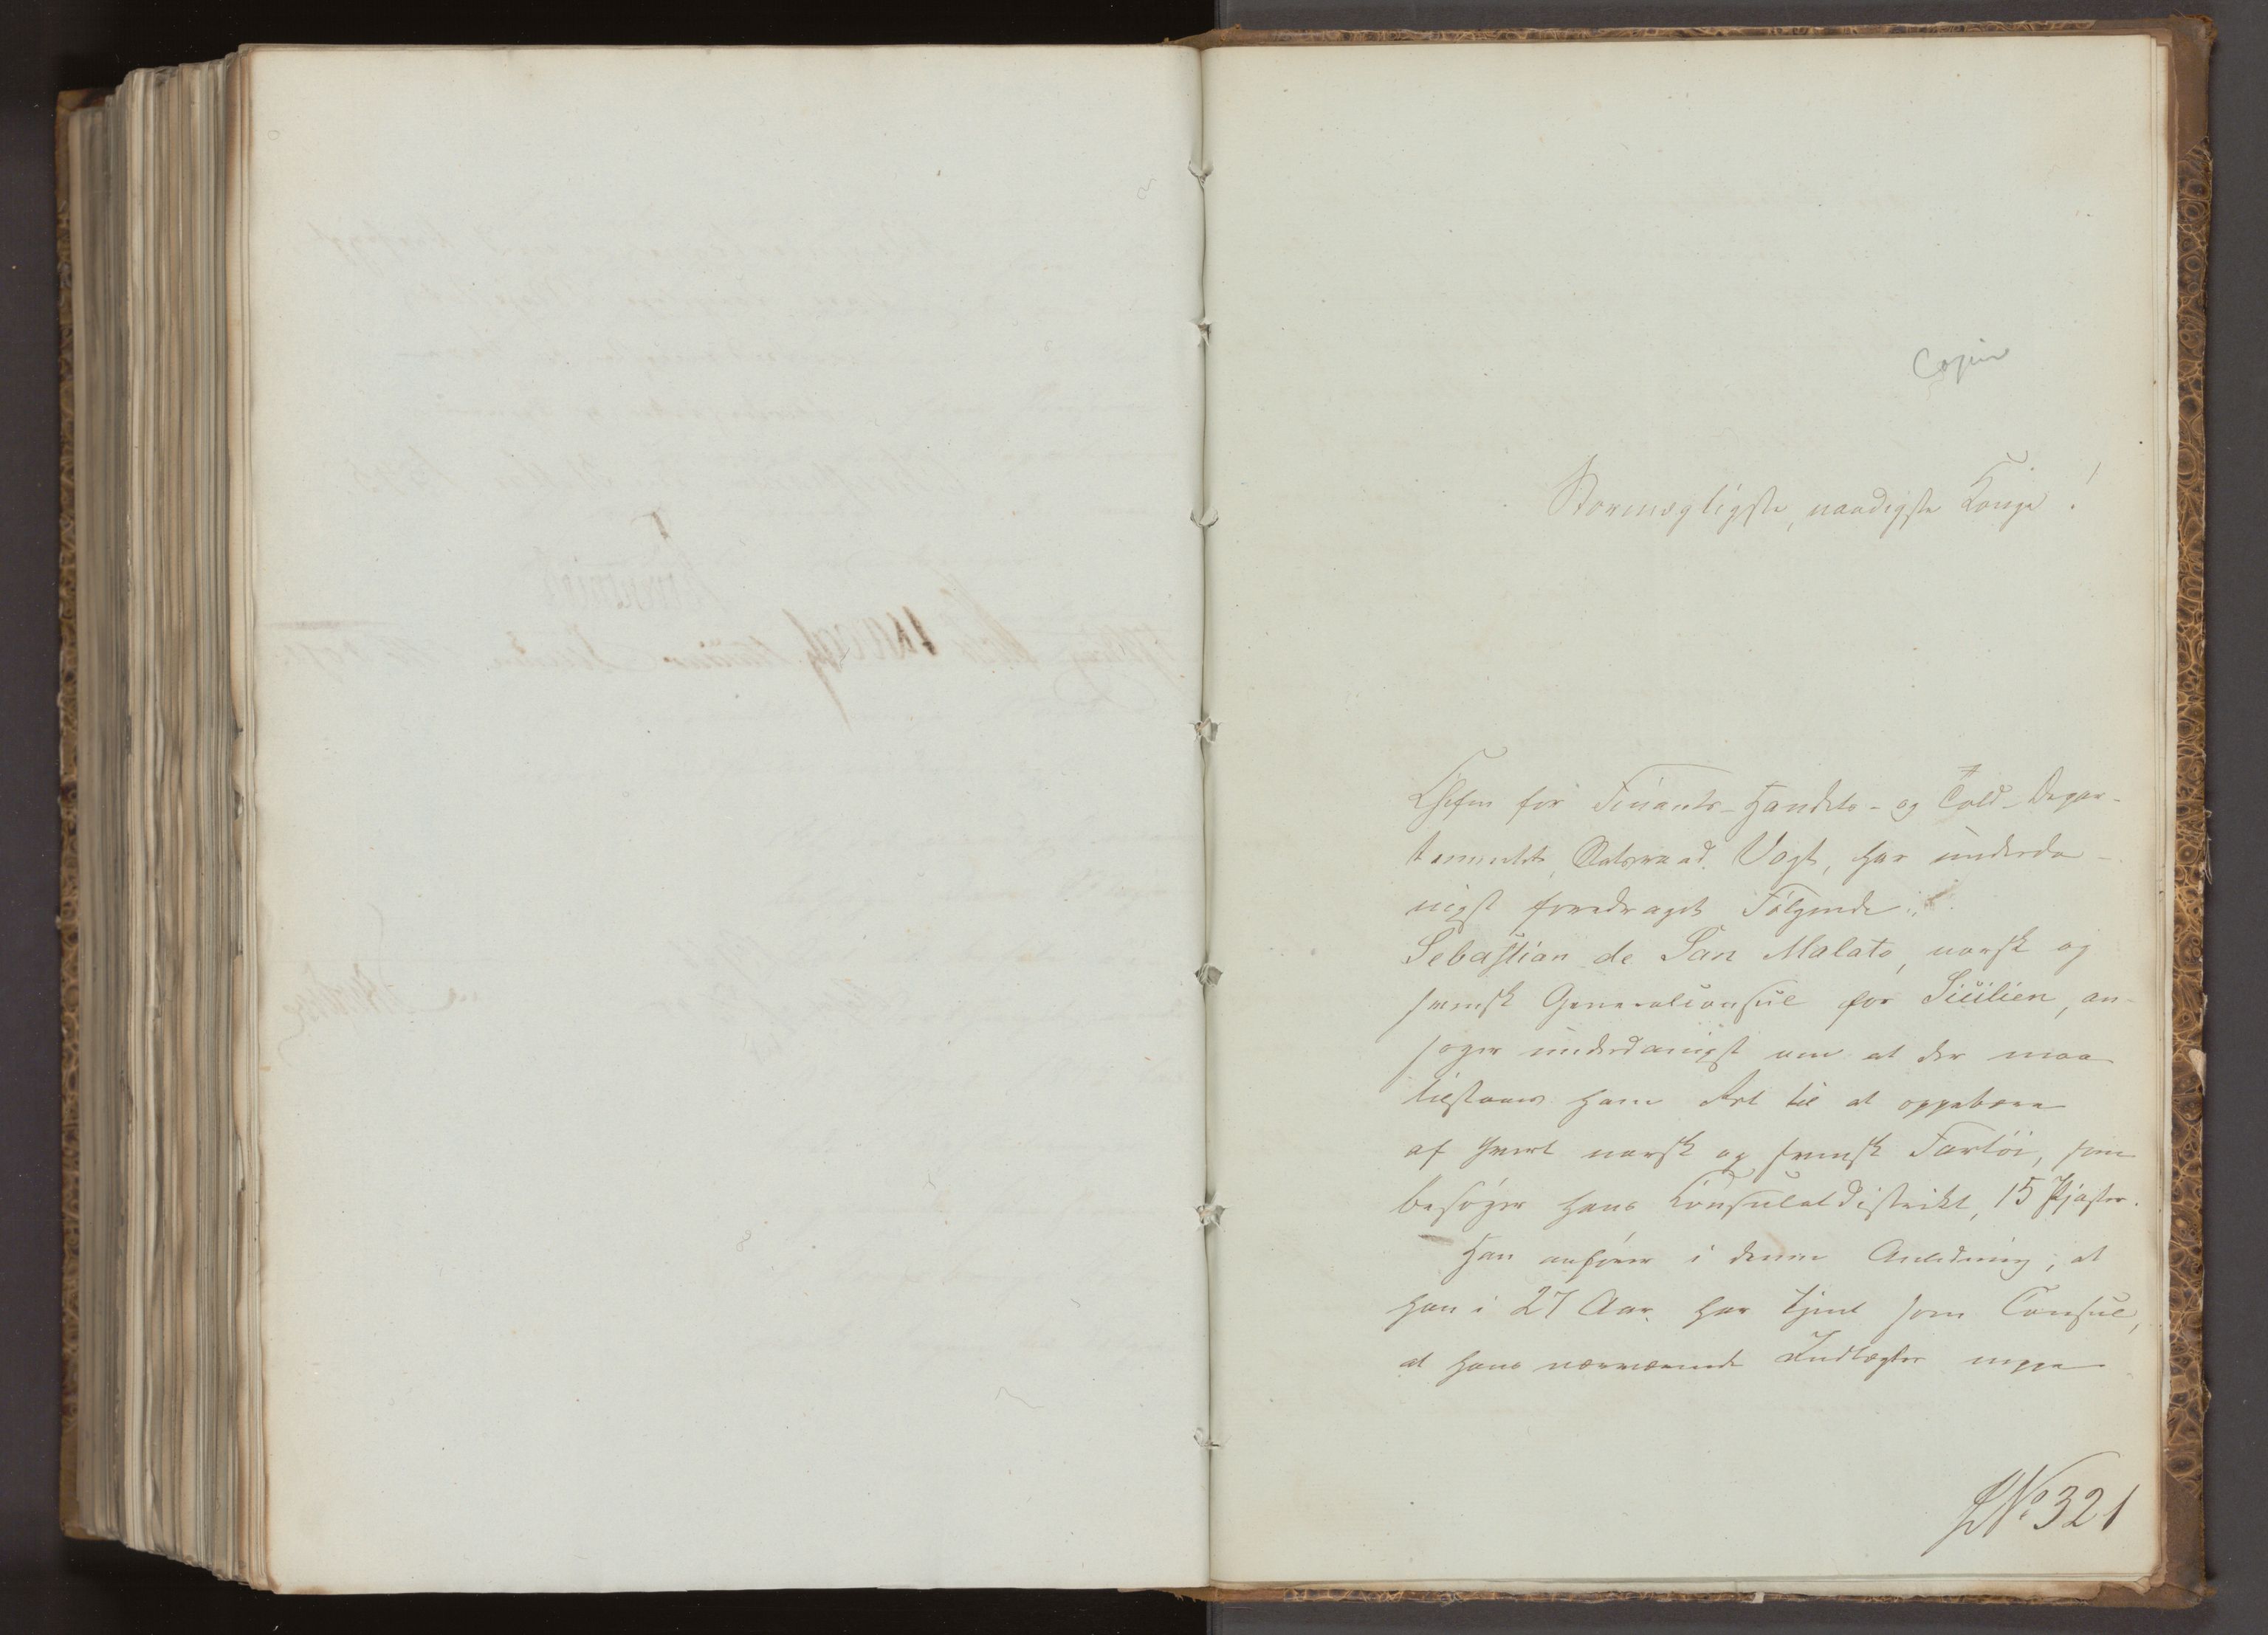 Copie
Stormægtigste, naadigste Konge!
Chefen for Finants-Handels- og Told-Depar-
tementet, Statsraad Vogt, har underda-
nigst foredraget Følgende:
Sebastian de San Malato, norsk og
svensk Generalconsul for Sicilien, an-
søger underdanigst om at der maa
tilstaaes ham Ret til at oppebære
af hvert norsk og svensk Fartöi, som
besøger hans Consulatdistrikt, 15 Pjaster.
Han anfører i denne Anledning, at
han i 27 Aar har tjent som Consul,
at hans nærværende Indtægter neppe
JNo 321